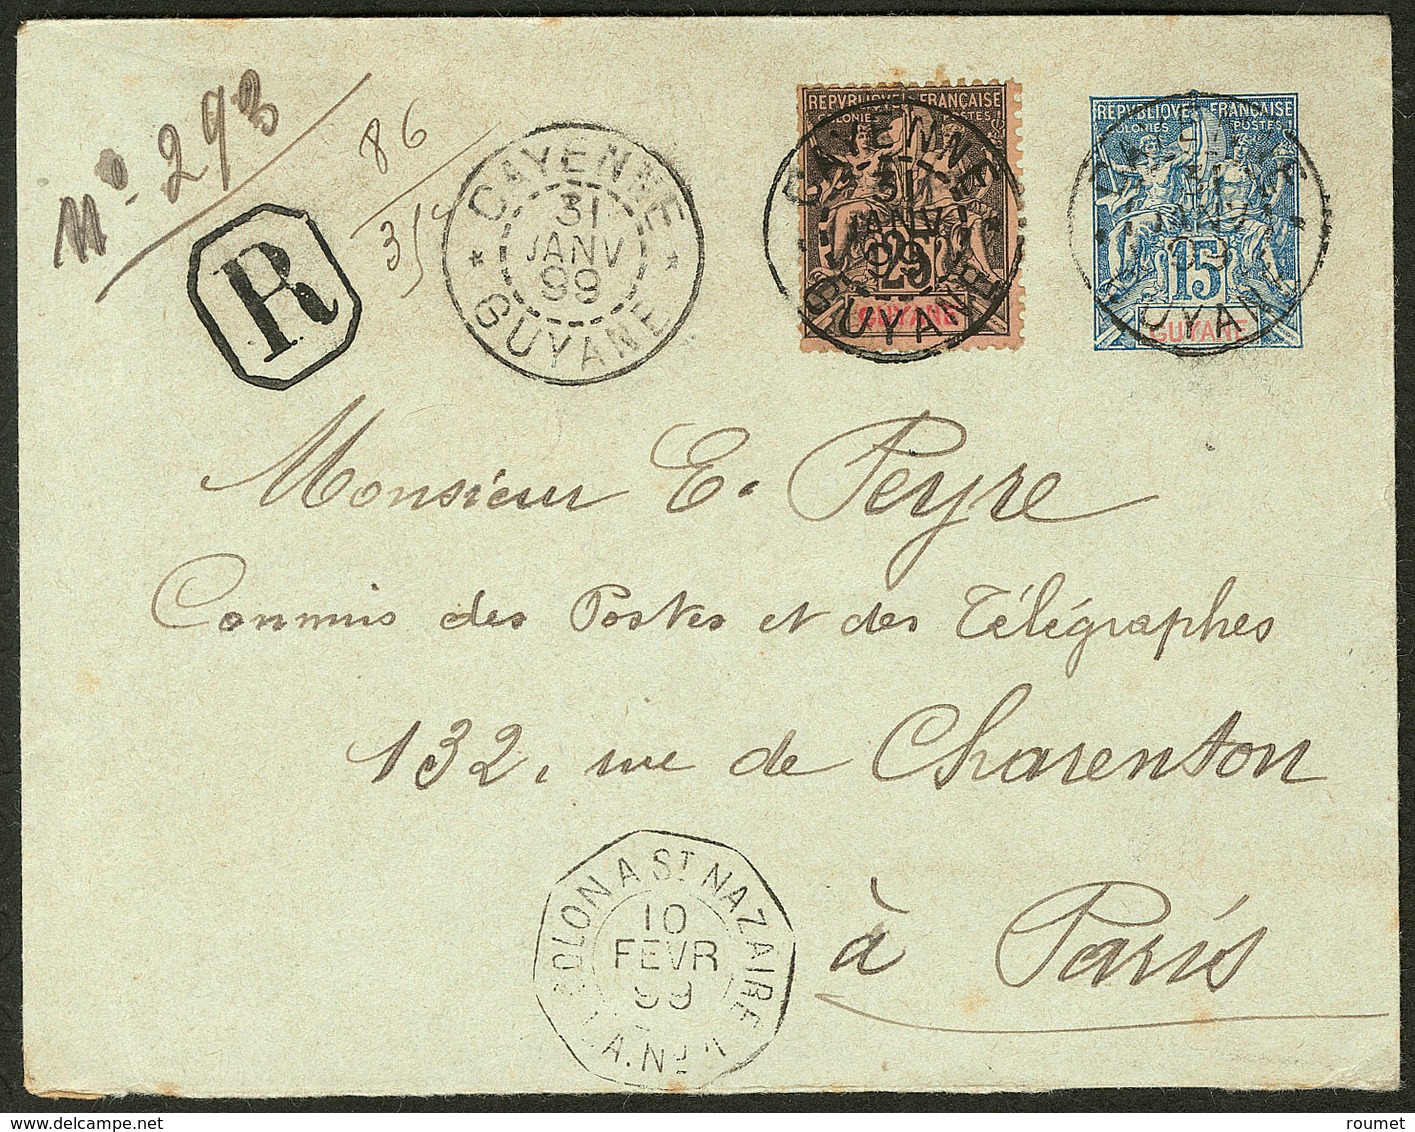 N° 293
86
35
R
CAYENNE
31
JANV
99
* GUYANE *
REPVBLIQVE FRANÇAISE
COLONIES POSTES
25
GUYANE
CAYENNE
31
JANV
99
GUYANE
REPVBLIQVE FRANÇAISE
COLONIES POSTES
15
GUYANE
Monsieur E. Peyre
Commis des Postes et des Télégraphes
132, rue de Charenton
à Paris
COLON A ST NAZAIRE
10
FEVR
99
L.A.N°
roumet - delcampe.net